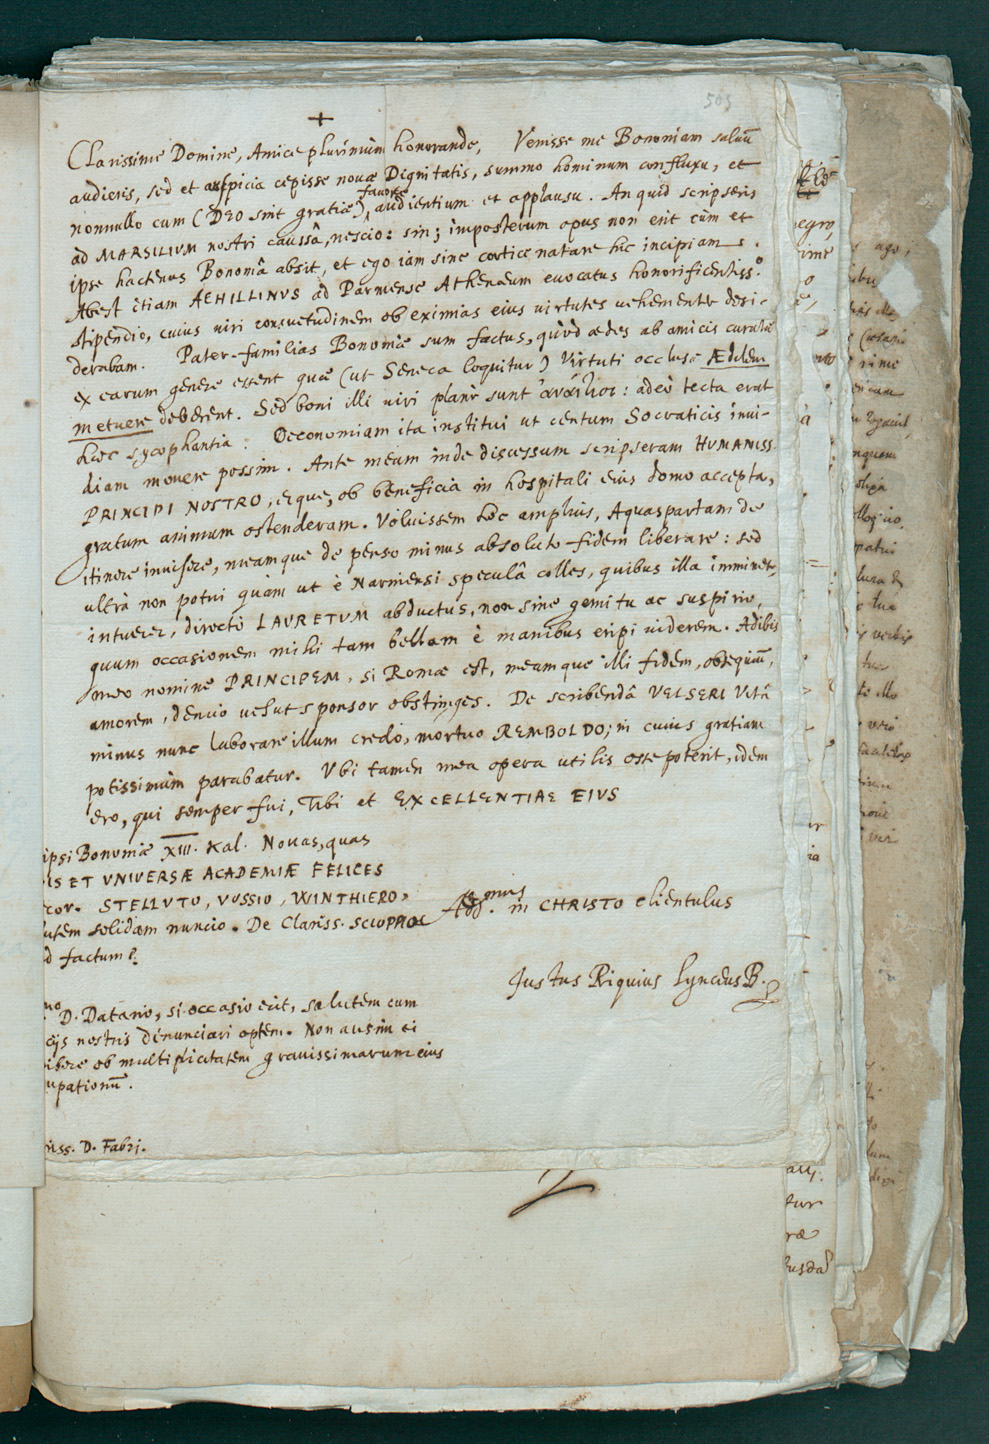 505
+
Clarissime Domine, Amice plurimùm honorande, Venisse me Bononiam saluū
audieris, sed et auspicia cepisse nouæ Dignitatis, summo hominum confluxu, et
nonnullo cum (DEO sint gratiæ) fauore audientium et applausu. An quid scripseris
ad MARSILIVM nostri caussâ, nescio: sin; imposterum opus non erit cùm et
ipse hactenus Bononiâ absit, et ego iam sine cortice natare hic incipiam.
Abest etiam ACHILLINVS ad Parmense Athenæum euocatus honorificentiss.º
stipendio, cuius uiri consuetudinem ob eximias eius uirtutes uehementer desi-
derabam. Pater-familias Bononiæ sum factus, quòd ædes ab amicis curatæ
ex earum genere essent quæ (ut Seneca loquitur) Virtuti occlusæ Ædilem
metuere deberent. Sed boni illi uiri planè sunt ἀναίτιοι: adeò tecta erat
hæc sycophantia. Oeconomiam ita institui ut centum Socraticis inui-
diam mouere possim. Ante meum inde discessum scripseram HUMANISS.
PRINCIPI NOSTRO, eique, ob beneficia in hospitali eius domo accepta,
gratum animum ostenderam. Voluissem hoc ampliùs, Aquaspartam de
itinere inuisere, meamque de penso minus absoluto fidem liberare: sed
ultrà non potui quàm ut è Narniensi speculâ colles, quibus illa imminet,
intuerer, directò LAVRETVM abductus, non sine gemitu ac suspirio,
quum occasionem mihi tam bellam è manibus eripi uiderem. Adibis
meo nomine PRINCIPEM, si Romæ est, meamque illi fidem, obsequiū,
amorem, denuò uelut sponsor obstringes. De scribendâ VELSERI Vitâ
minus nunc laborare illum credo, mortuo REMBOLDO; in cuius gratiam
potissimùm parabatur. Vbi tamen mea opera utilis esse poterit, idem
ero, qui semper fui, Tibi et EXCELLENTIAE EIVS
ipsi Bononiæ XIII. Kal. Nouas, quas
IS ET VNIVERSÆ ACADEMIÆ FELICES
cor. STELLVTO, VOSSIO, WINTHERO,
utem solidam nuncio. De Clariss. SCIOPPIO
d factum?
in CHRISTO clientulus
Justus Riquius Lynceus B.
mo D. Datario, si occasio erit, salutem cum
cijs nostris denunciari optem. Non ausim ei
ibere ob multiplicitatem grauissimarum eius
upationū.
riss. D. Fabri.